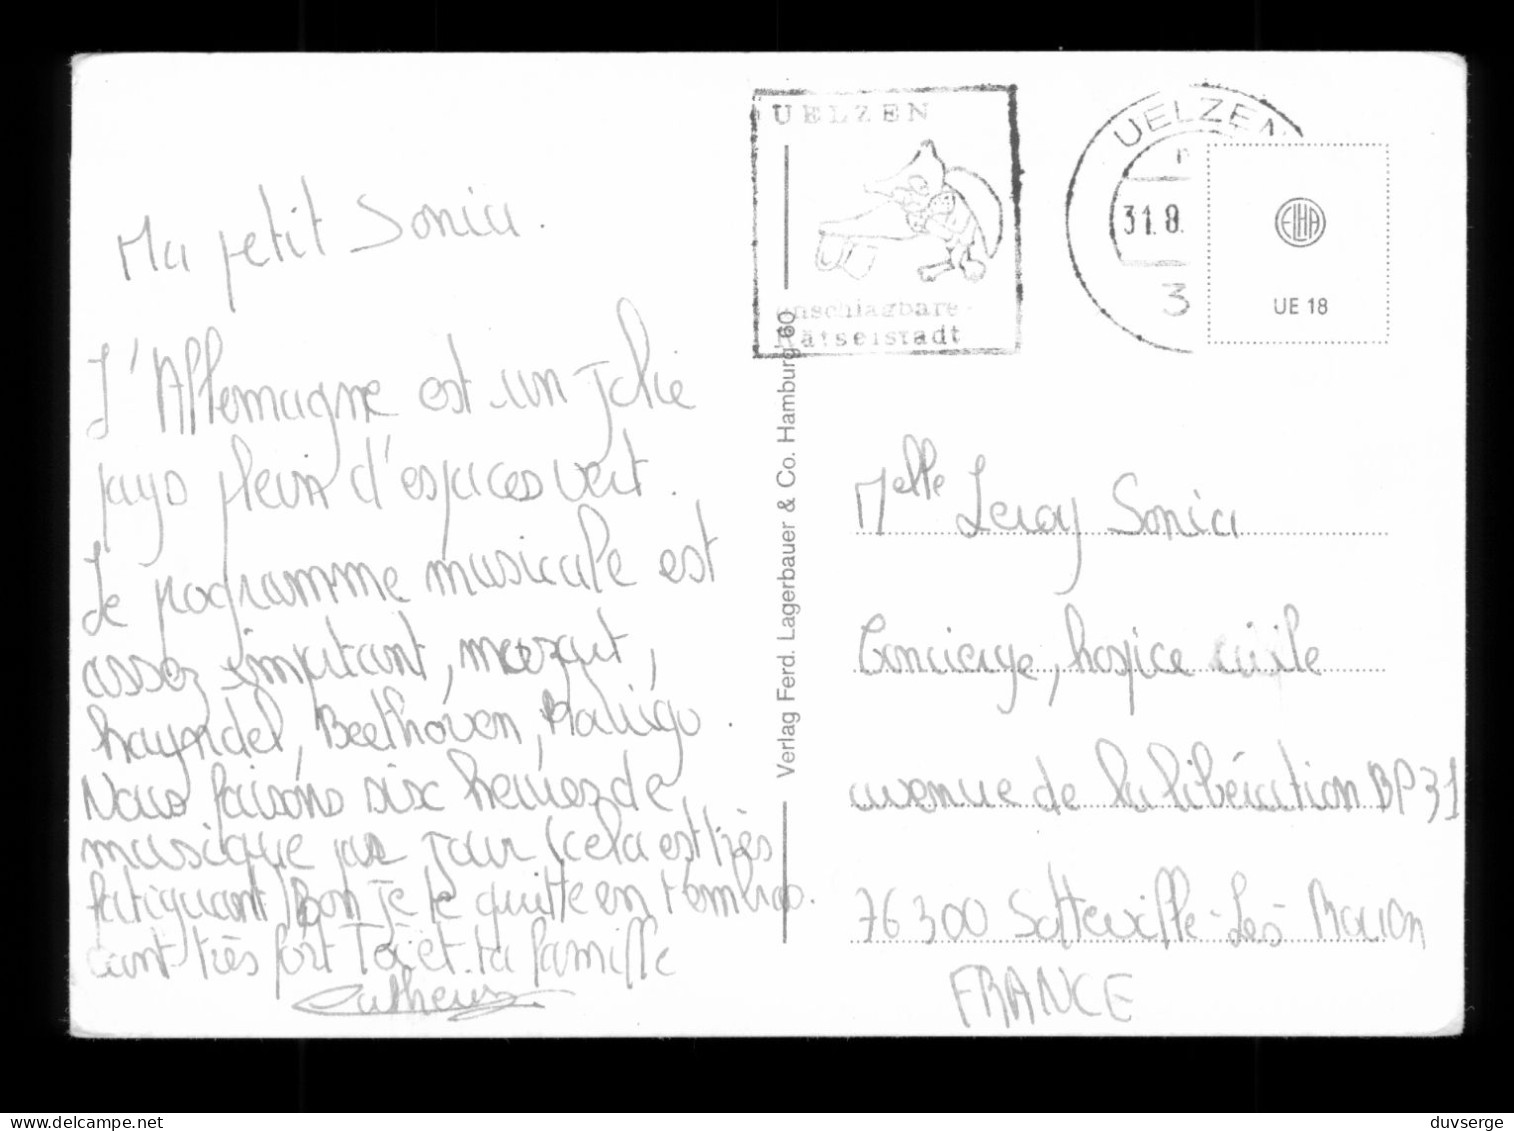 Ma petit Sonia.
L'Allemagne est un jolie
pays plein d'espaces vert.
Le programme musicale est
assez important, mozart,
hayndel, Beethoven,
Nous faisons six heures de
musique par jour (cela est très
fatiguant) Bon je te quitte en t'embras.
cant très fort Toi et ta famille
UELZEN
unschlagbare
Rätselstadt
UELZEN
31.8.
3
ELHA
UE 18
Verlag Ferd. Lagerbauer & Co. Hamburg 60
Melle Leroy Sonia
Concierge, hospice civile
avenue de la libération BP 31
76300 Sotteville-Lès-Rouen
FRANCE
delcampe.net
duvserge